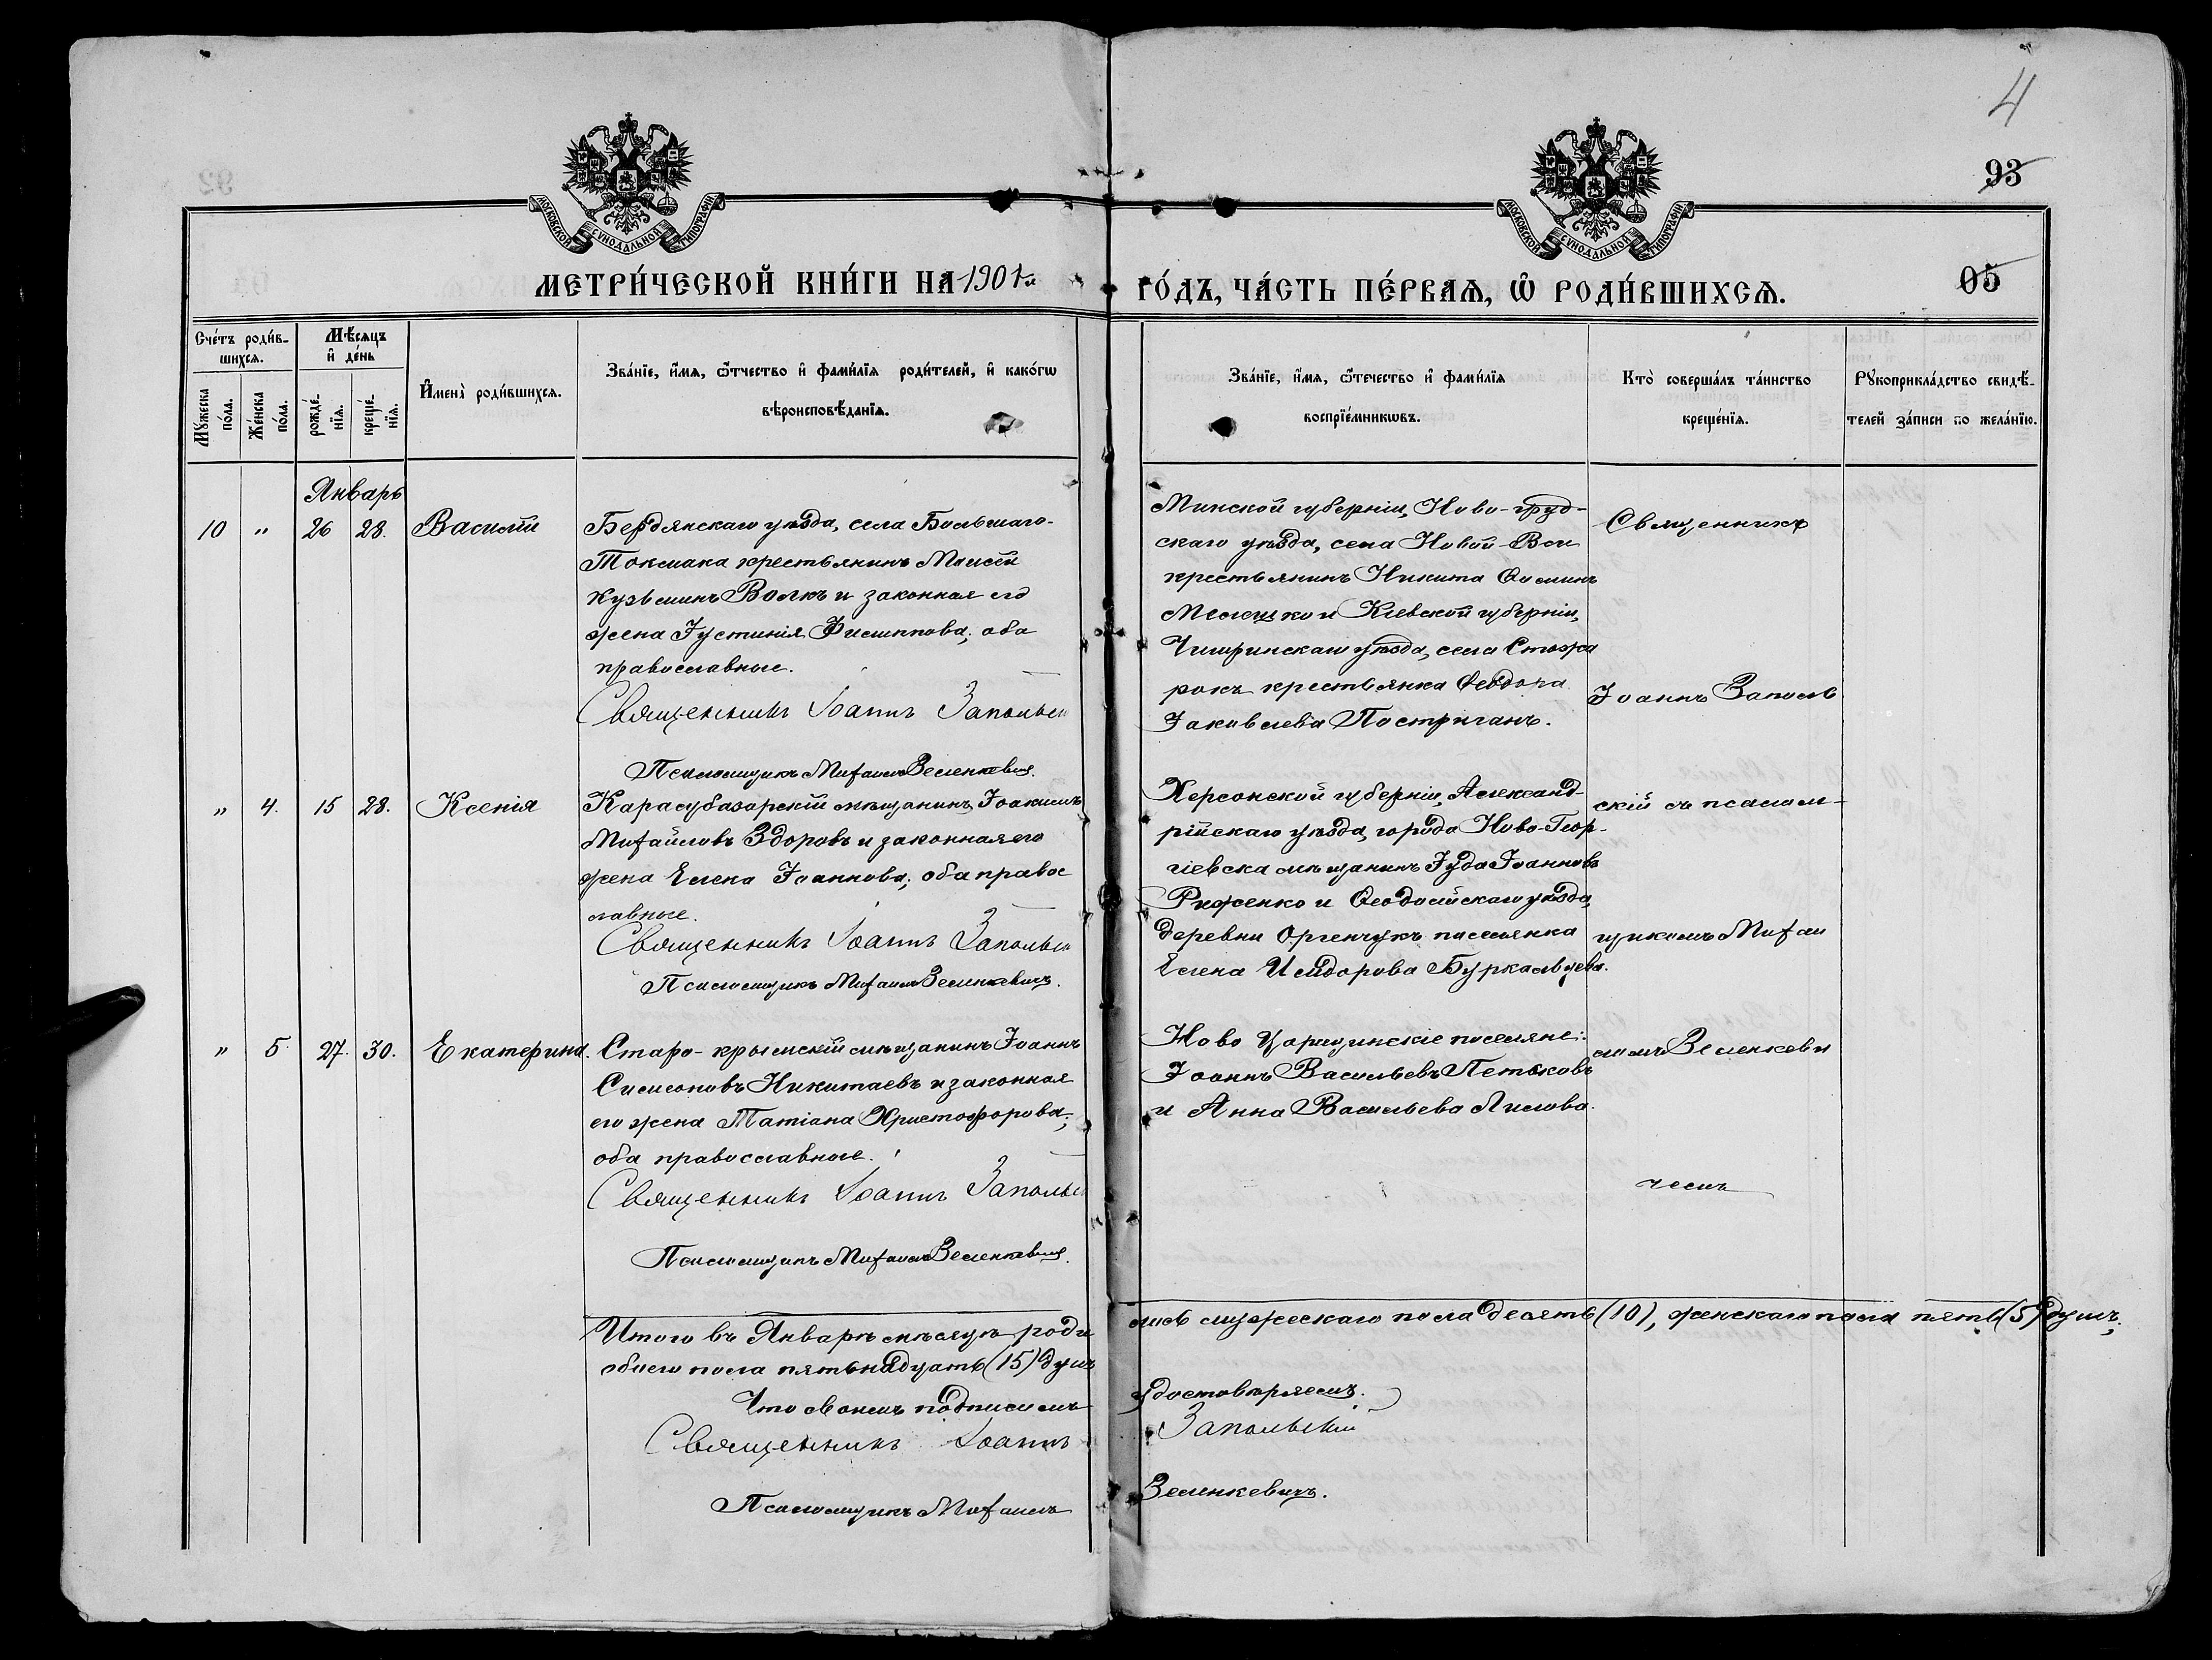 4
93
05
МОСКОВСКОЙ СУНОДАЛЬНОЙ ТИПОГРАФІИ
МОСКОВСКОЙ СУНОДАЛЬНОЙ ТИПОГРАФІИ
МЕТРИ́ЧЕСКОЙ КНИ́ГИ НА 1901 й
ГО́ДЪ, ЧА́СТЬ ПЕ́РВАѦ, Ѽ РОДИ́ВШИХСѦ.
Сче́тъ роди́в-
шихсѧ.
Мꙋжеска по́ла.
Же́нска по́ла.
Мѣ́сѧцъ
и҆ де́нь
рожде́-
нїѧ.
креще́-
нїѧ.
И҆мена̀ роди́вшихсѧ.
Зва́нїе, и҆́мѧ, ѻ҆́тчество и҆ фами́лїѧ роди́телей, и҆ како́гѡ
вѣроисповѣ́данїѧ.
Зва́нїе, и҆́мѧ, ѻ҆те́чество и҆ фами́лїѧ
воспрїе́мникѡвъ.
Кто̀ соверша́лъ та́инство
креще́нїѧ.
Рꙋкоприкла́дство свидѣ́-
телей за́писи по жела́нїю.
Январь
10 " 26 28. Василій
Бердянскаго уѣзда, села Большаго-
Токмака крестьянинъ Моисей
Кузьминъ Волкъ и законная его
жена Іустинія Филиппова; оба
православные.
Священникъ Іоаннъ Запольск
Псаломщикъ Михаилъ Зеленкевич.
Минской губерніи, Ново-груд-
скаго уѣзда, села Новой-Вси
крестьянинъ Никита Ѳоминъ
Мелешко и Кіевской губерніи,
Чигринскаго уѣзда, села Стажа
рокъ крестьянка Ѳеодора
Іаковлева Постриганъ.
Священникъ
Іоаннъ Заполь
" 4. 15 28. Ксенія
Карасубазарскій мѣщанинъ Іоакимъ
Михайловъ Здоровъ и законная его
жена Елена Іоаннова; оба правос
лавные.
Священникъ Іоаннъ Запольск
Псаломщикъ Михаилъ Зеленкевичъ.
Херсонской губерніи, Александ-
рійскаго уѣзда, города Ново-Геор-
гіевска мѣщанинъ Іуда Іоанновъ
Риженко и Ѳеодосійскаго уѣзда,
деревни Ортенчукъ поселянка
Елена Исидорова Буркальцева.
скій съ псалом-
щикомъ Михаи
" 5 27. 30. Екатерина.
Старо-крымскій мѣщанинъ Іоаннъ
Симеоновъ Никитаевъ и законная
его жена Татіана Христофорова;
оба православные.
Священникъ Іоаннъ Запольск
Псаломщикъ Михаилъ Зеленкевич.
Ново Царицинскіе поселяне:
Іоаннъ Васильевъ Петковъ
и Анна Васильева Лилова.
ломъ Зеленкеви
чемъ
Итого въ Январѣ мѣсяцѣ роди
лось мужескаго пола десять (10), женскаго пола пять (5) душъ,
обоего пола пятьнадцать (15) душъ
Что своимъ подписомъ
удостовѣряемъ.
Священникъ Іоаннъ
Запольскій
Псаломщикъ Михаилъ
Зеленкевичъ.